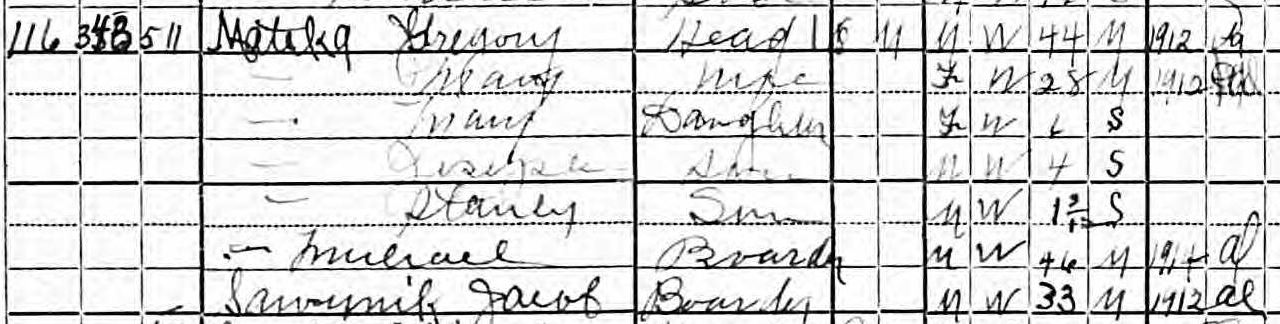 116 5 11 Mateka Gregory Head 1 M W 44 M 1912
— Mary Wife F W 28 M 1912
— Mary Daughter F W 6 S
— Joseph Son M W 4 S
— Stanley Son M W 1 S
— Michael Boarder M W 46 M 1914 al
Jacob Boarder M W 33 M 1912 al